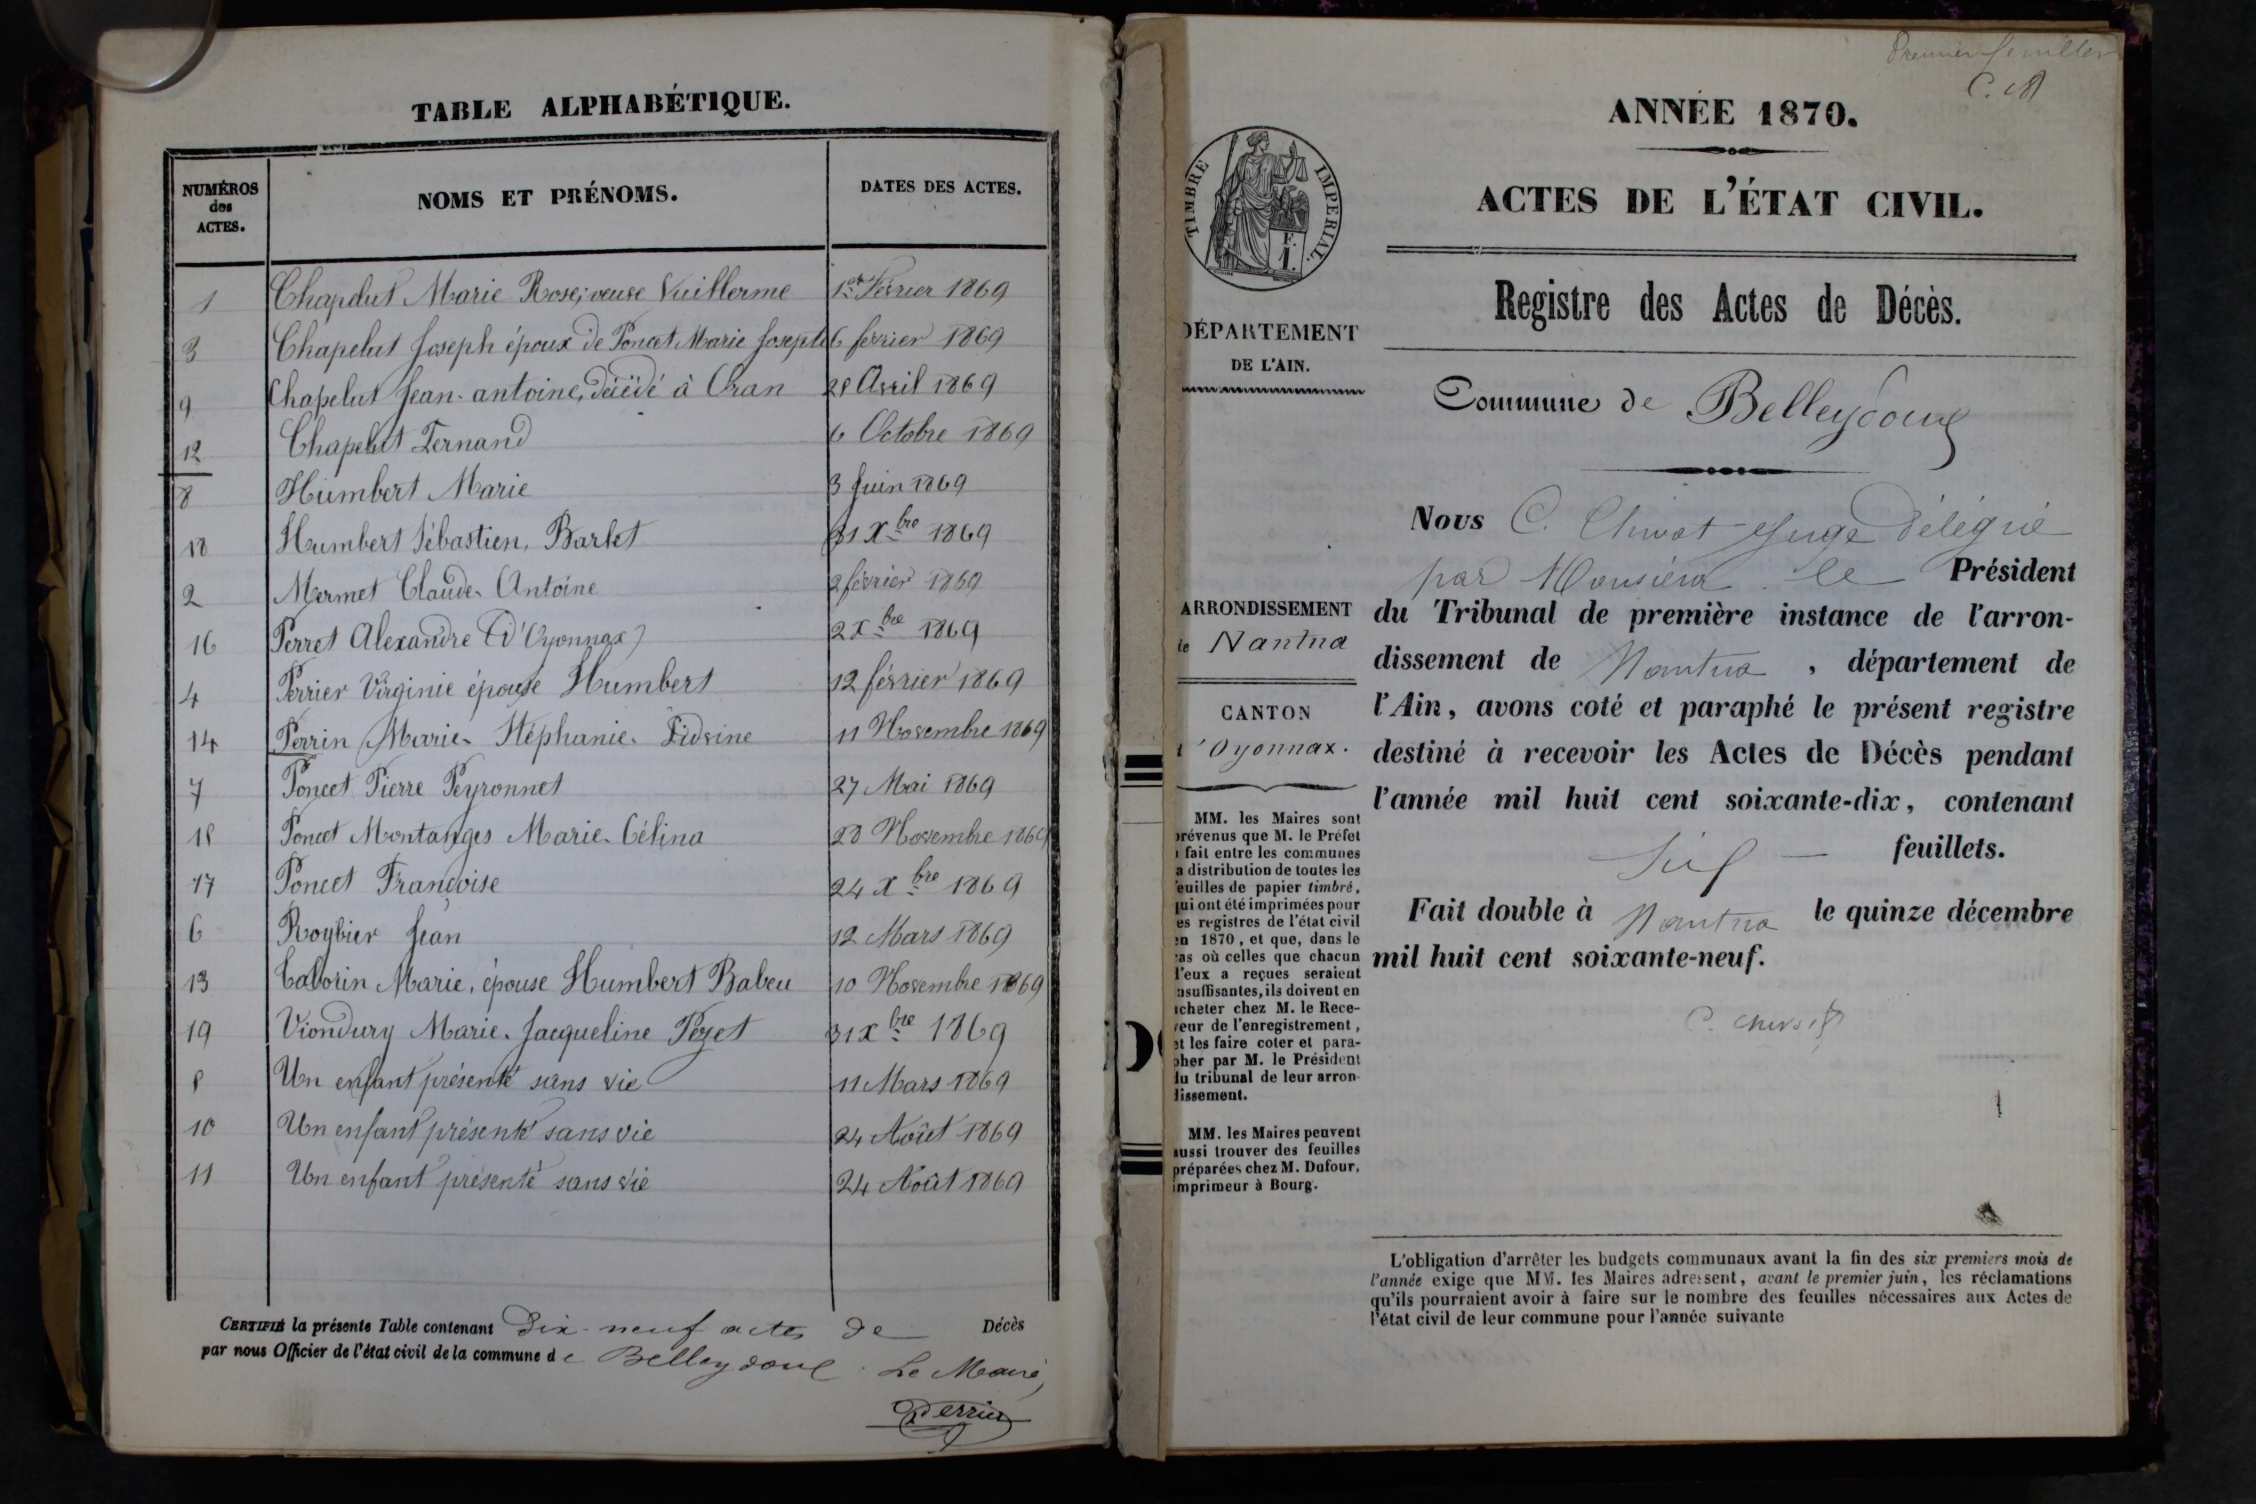 TABLE ALPHABÉTIQUE.
NUMÉROS
des
ACTES.
NOMS ET PRÉNOMS.
DATES DES ACTES.
1 Chapelut Marie Rose, veuve Vuillerme 1er Février 1869
3 Chapelut Joseph époux de Poncet Marie Josepte 6 février 1869
9 Chapelut Jean-antoine, décédé à Oran 28 Avril 1869
12 Chapelut Fernand 6 Octobre 1869
8 Humbert Marie 3 Juin 1869
18 Humbert Sébastien, Barlet 31 Xbre 1869
2 Mermet Claude-Antoine 2 février 1869
16 Perret Alexandre (d'Oyonnax) 2 Xbre 1869
4 Perrier Virginie épouse Humbert 12 février 1869
14 Perrin Marie-Stéphanie- 11 Novembre 1869
7 Poncet Pierre Peyronnet 27 Mai 1869
15 Poncet Montanges Marie-Célina 28 Novembre 1869
17 Poncet Françoise 24 Xbre 1869
6 Roybier Jean 12 Mars 1869
13 Tavorin Marie, épouse Humbert Babeu 10 Novembre 1869
19 Viondury Marie-Jacqueline Pezet 31 Xbre 1869
5 Un enfant présenté sans vie 11 Mars 1869
10 Un enfant présenté sans vie 24 Août 1869
11 Un enfant présenté sans vie 24 Août 1869
CERTIFIÉ la présente Table contenant Dix-neuf actes de Décès
par nous Officier de l'état civil de la commune de Belleydoux. Le Maire,
Perrin
Premier feuillet
ANNÉE 1870.
TIMBRE IMPERIAL.
F.
1.
ACTES DE L'ÉTAT CIVIL.
Registre des Actes de Décès.
DÉPARTEMENT
DE L'AIN.
Commune de Belleydoux
ARRONDISSEMENT
de Nantua
CANTON
d'Oyonnax.
MM. les Maires sont
prévenus que M. le Préfet
a fait entre les communes
la distribution de toutes les
feuilles de papier timbré,
qui ont été imprimées pour
les registres de l'état civil
en 1870, et que, dans le
cas où celles que chacun
d'eux a reçues seraient
insuffisantes, ils doivent en
acheter chez M. le Rece-
veur de l'enregistrement,
et les faire coter et para-
pher par M. le Président
du tribunal de leur arron-
dissement.
MM. les Maires peuvent
aussi trouver des feuilles
préparées chez M. Dufour,
imprimeur à Bourg.
Nous C. Juge délégué
par Monsieur le Président
du Tribunal de première instance de l'arron-
dissement de Nantua, département de
l'Ain, avons coté et paraphé le présent registre
destiné à recevoir les Actes de Décès pendant
l'année mil huit cent soixante-dix, contenant
Six feuillets.
Fait double à Nantua le quinze décembre
mil huit cent soixante-neuf.
L'obligation d'arrêter les budgets communaux avant la fin des six premiers mois de
l'année exige que MM. les Maires adressent, avant le premier juin, les réclamations
qu'ils pourraient avoir à faire sur le nombre des feuilles nécessaires aux Actes de
l'état civil de leur commune pour l'année suivante